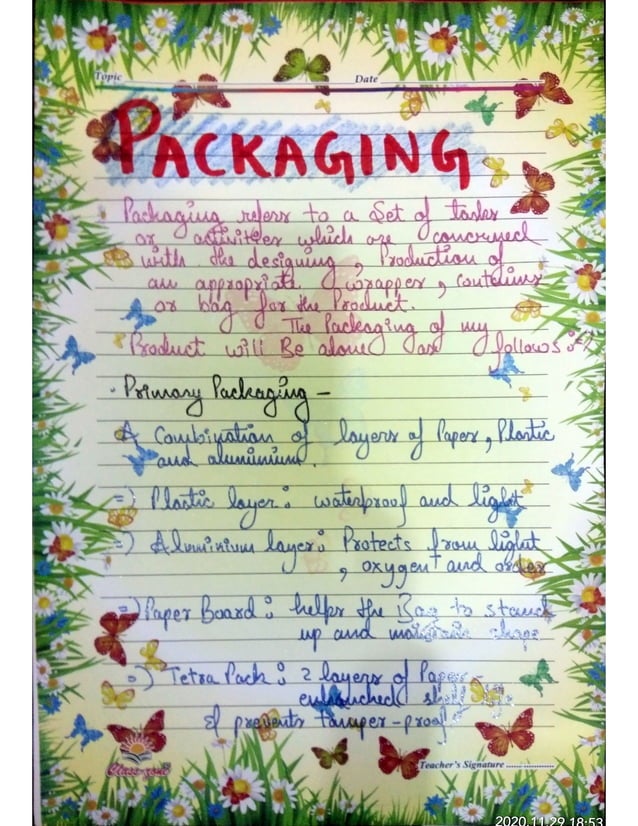 Topic Date
PACKAGING
Packaging refers to a Set of tasks
or activities which are concerned
with the designing, Production of
an appropriate wrapper, container
or bag for the Product.
The Packaging of my
Product will Be alone as follows :-
Primary Packaging -
A Combination of layers of Paper, Plastic
and aluminium.
=) Plastic layer : waterproof and light
=) Aluminium layer : Protects from light
, oxygen and order
=) Paper Board : helps the Bag to stand
up and maintain shape
=) Tetra Pack : 2 layers of Paper
& prevents tamper-proof
Class-zone
Teacher's Signature
2020.11.29 18:53